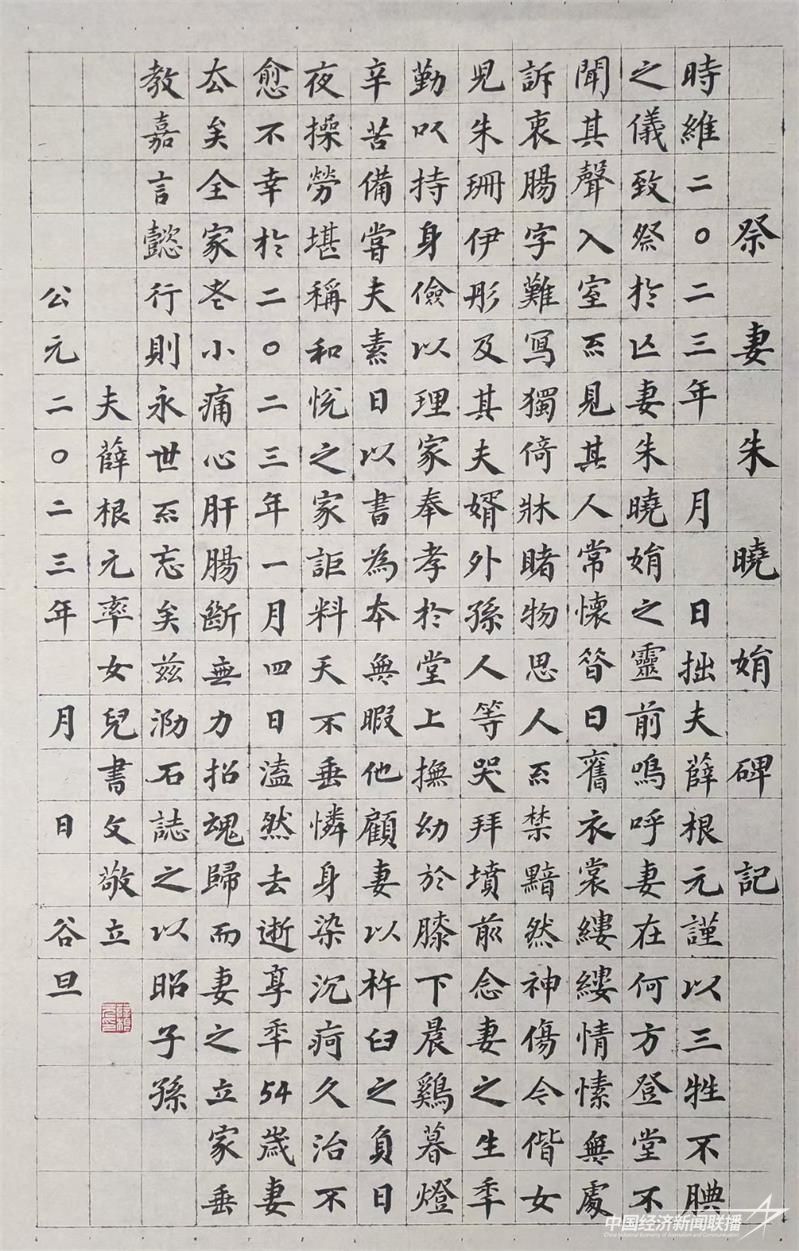 祭妻朱曉姢碑記
時維二〇二三年 月 日拙夫薛根元謹以三牲不腆
之儀致祭於亡妻朱曉姢之靈前嗚呼妻在何方登堂不
聞其聲入室不見其人常懷昝日舊衣裳縷縷情愫無處
訴衷腸字難寫獨倚牀睹物思人不禁黯然神傷今偕女
兒朱珊伊彤及其夫婿外孫人等哭拜墳前念妻之生年
勤以持身儉以理家奉孝於堂上撫幼於膝下晨鷄暮燈
辛苦備嘗夫素日以書為本無暇他顧妻以杵臼之負日
夜操勞堪稱和悅之家詎料天不垂憐身染沉疴久治不
愈不幸於二〇二三年一月四日溘然去逝享年54歲妻
去矣全家老小痛心肝腸斷無力招魂歸而妻之立家垂
教嘉言懿行則永世不忘矣兹泐石誌之以昭子孫
夫薛根元率女兒書文敬立
公元二〇二三年 月 日 谷旦
中国经济新闻联播